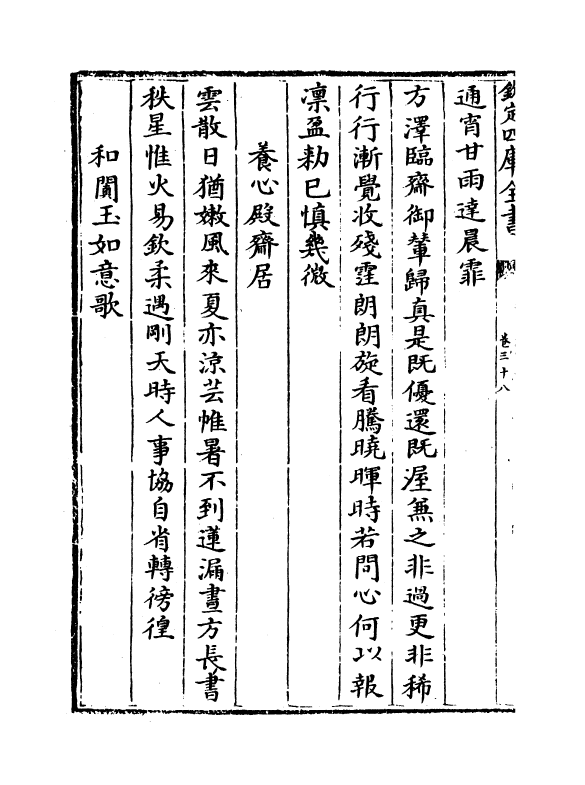 欽定四庫全書
卷三十八
通宵甘雨達晨霏
方澤臨齋御輦歸真是既優還既渥無之非過更非稀
行行漸覺收殘霔朗朗旋看騰曉暉時若問心何以報
凜盈勑已慎幾微
養心殿齋居
雲散日猶嫩風來夏亦涼芸帷暑不到蓮漏晝方長書
秩星惟火易欽柔遇剛天時人事協自省轉徬徨
和闐玉如意歌